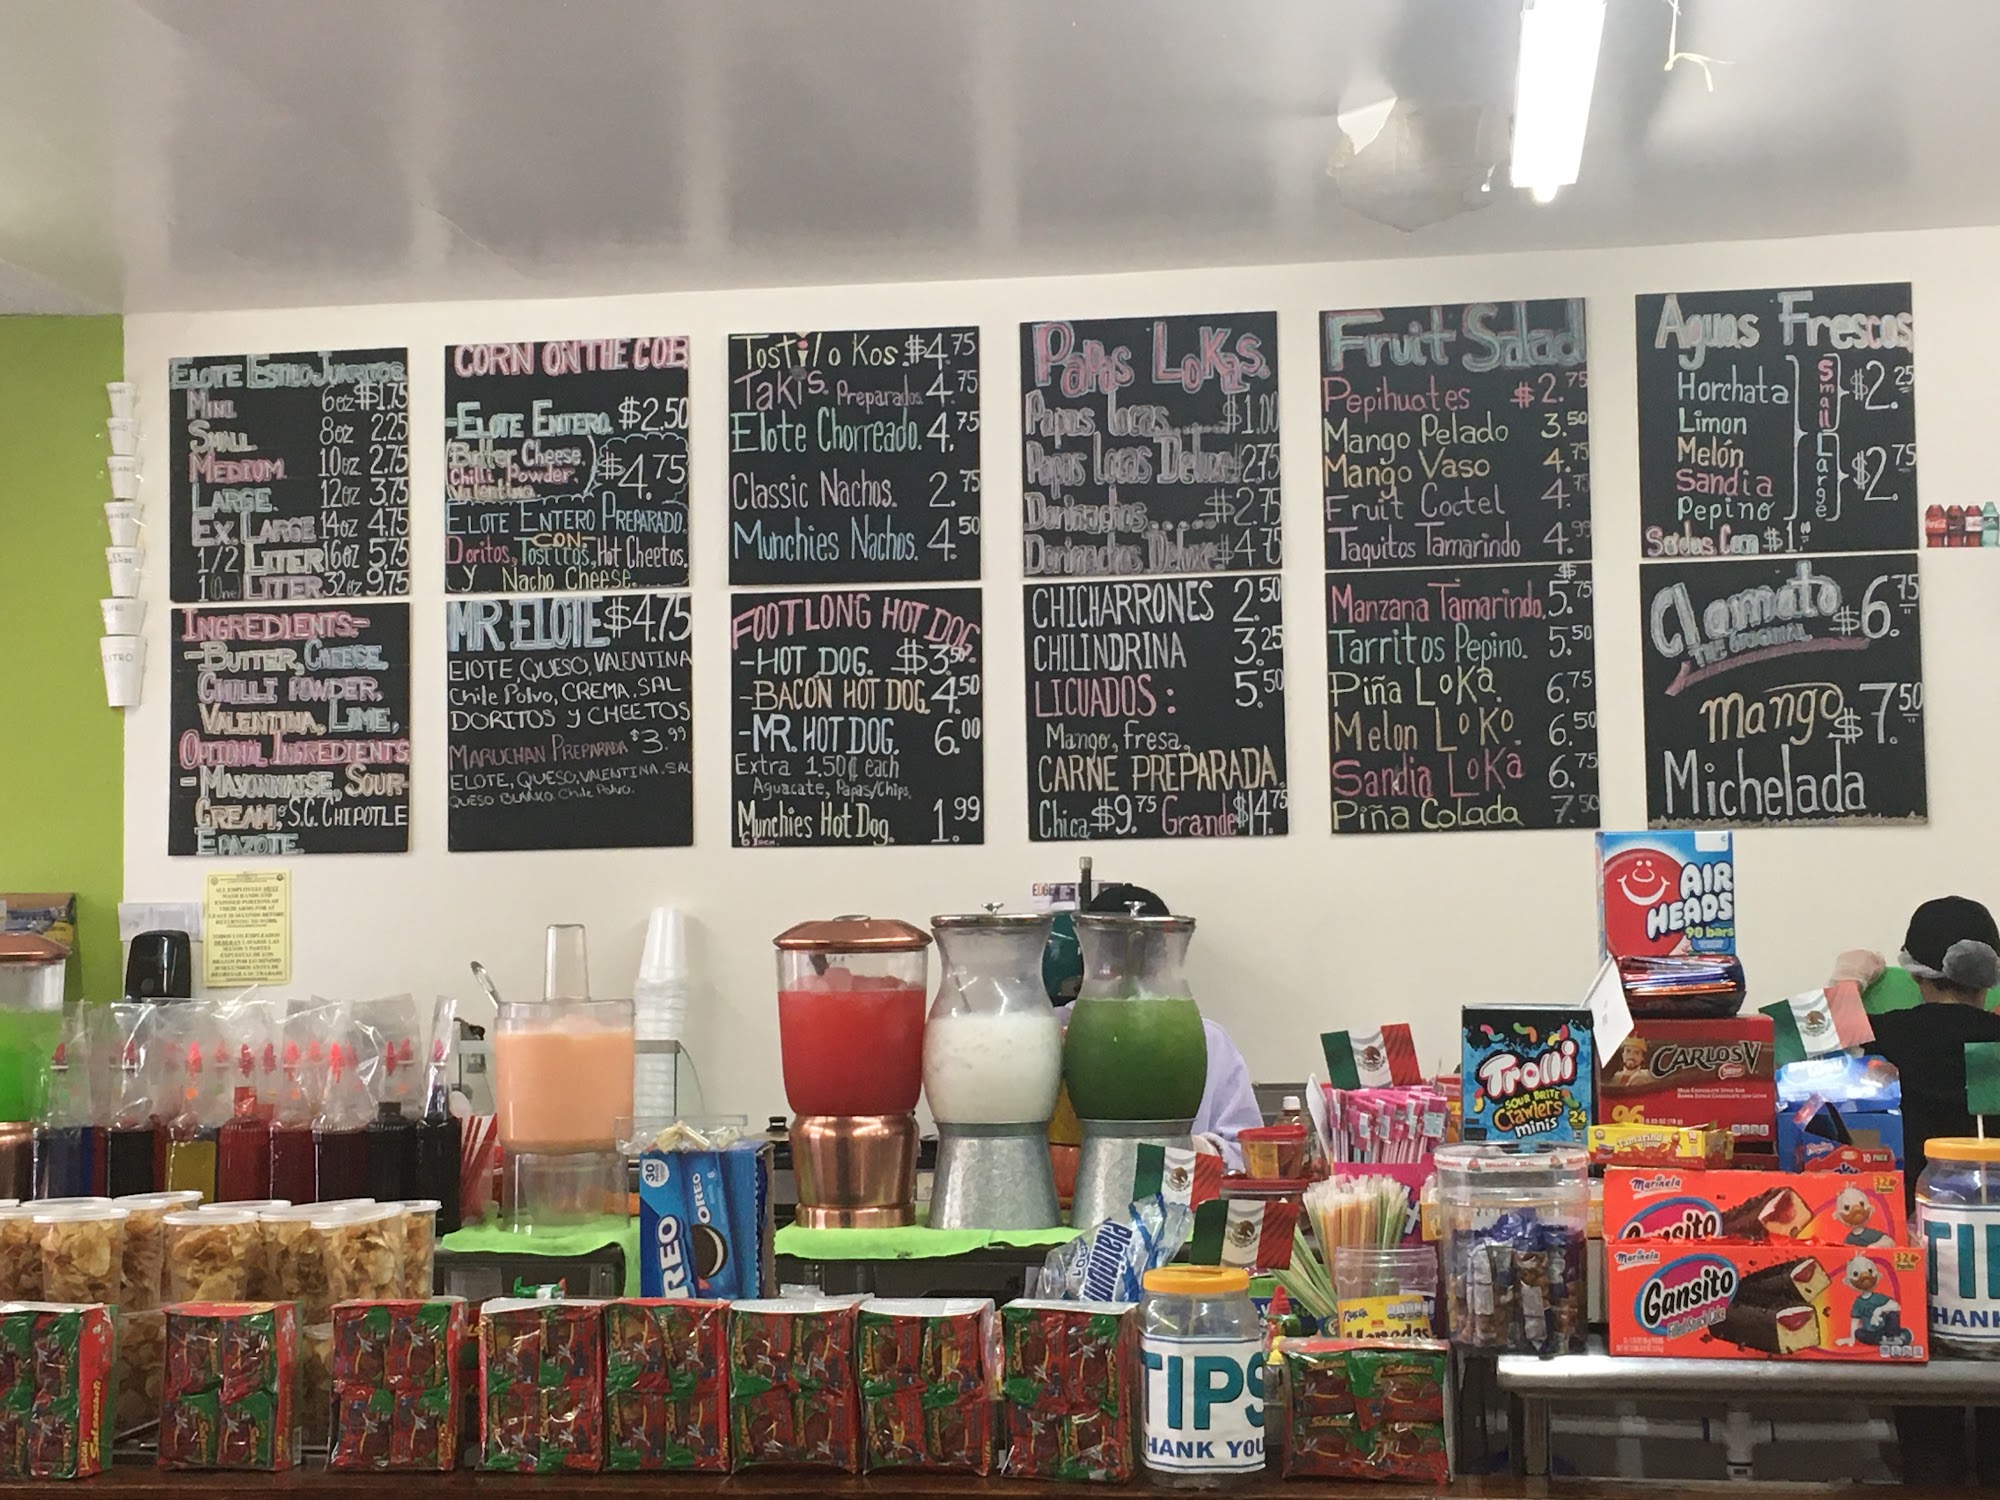 ELOTE ESTILO JUARITOS
MINI 6oz $1.75
SMALL 8oz 2.25
MEDIUM. 10oz 2.75
LARGE. 12oz 3.75
EX. LARGE 14oz 4.75
1/2 LITER 16oz 5.75
1 (One) LITER 32oz 9.75
INGREDIENTS:-
-BUTTER, CHEESE
CHILLI POWDER,
VALENTINA, LIME,
OPTIONAL INGREDIENTS
- MAYONNAISE, SOUR-
CREAM, & S.C. CHIPOTLE
EPAZOTE.
CORN ON THE COB
-ELOTE ENTERO. $2.50
(Butter Cheese,
Chilli Powder,
Valentina) $4.75
ELOTE ENTERO PREPARADO.
-CON-
Doritos, Tostitos, Hot Cheetos,
Y Nacho Cheese.
MR. ELOTE $4.75
ElOTE, QUESO, VALENTINA
Chile Polvo, CREMA. SAL
DORITOS Y CHEETOS
MARUCHAN PREPARADA $3.99
ELOTE, QUESO, VALENTINA. SAL
QUESO BLANCO. Chile Polvo.
Tostilo Kos. $4.75
TAKIS. Preparados. 4.75
Elote Chorreado. 4.75
Classic Nachos. 2.75
Munchies Nachos. 4.50
FOOTLONG HOT DOG
-HOT DOG. $3.50
-BACON HOT DOG. 4.50
-MR. HOT DOG. 6.00
Extra 1.50¢ each
Aguacate, Papas/Chips.
Munchies Hot Dog. 1.99
6 INCH.
Papas LoKas.
Papas locas...... $1.00
Papas locas Deluxe $2.75
Dorinachos...... $2.75
Dorinachos Deluxe $4.75
CHICHARRONES 2.50
CHILINDRINA 3.25
LICUADOS: 5.50
Mango, fresa,
CARNE PREPARADA.
Chica $9.75 Grande $14.75
Fruit Salad
Pepihuates $2.75
Mango Pelado 3.50
Mango Vaso 4.75
Fruit Coctel 4.75
Taquitos Tamarindo 4.99
Manzana Tamarindo. $5.75
Tarritos Pepino. 5.50
Piña LoKa. 6.75
Melon LoKo. 6.50
Sandia LoKa 6.75
Piña Colada 7.50
Aguas Frescas
Horchata
Limon
Melón
Sandia
Pepino
Small $2.25
Large $2.75
Sodas Can $1.00
Clamato $6.75
THE ORIGINAL
Mango $7.50
Michelada
LITRO
ALL EMPLOYEES MUST
WASH HANDS AND
EXPOSED PORTIONS OF
THEIR ARMS FOR AT
LEAST 20 SECONDS BEFORE
RETURNING TO WORK.
TODOS LOS EMPLEADOS
DEBERAN LAVARSE LAS
MANOS Y PARTES
EXPUESTAS DE LOS
BRAZOS POR LO MINIMO
20 SEGUNDOS ANTES DE
REGRESAR A SU TRABAJO
AIR
HEADS
90 bars
Trolli
SOUR BRITE
Crawlers
minis
24
CARLOS V
Nestle
96
Tamarind
10 PACK
OREO
OREO
30
Marinela
Gansito
32
Marinela
Gansito
Filled Snack Cake
32
TIPS
THANK YOU
TIPS
THANK YOU